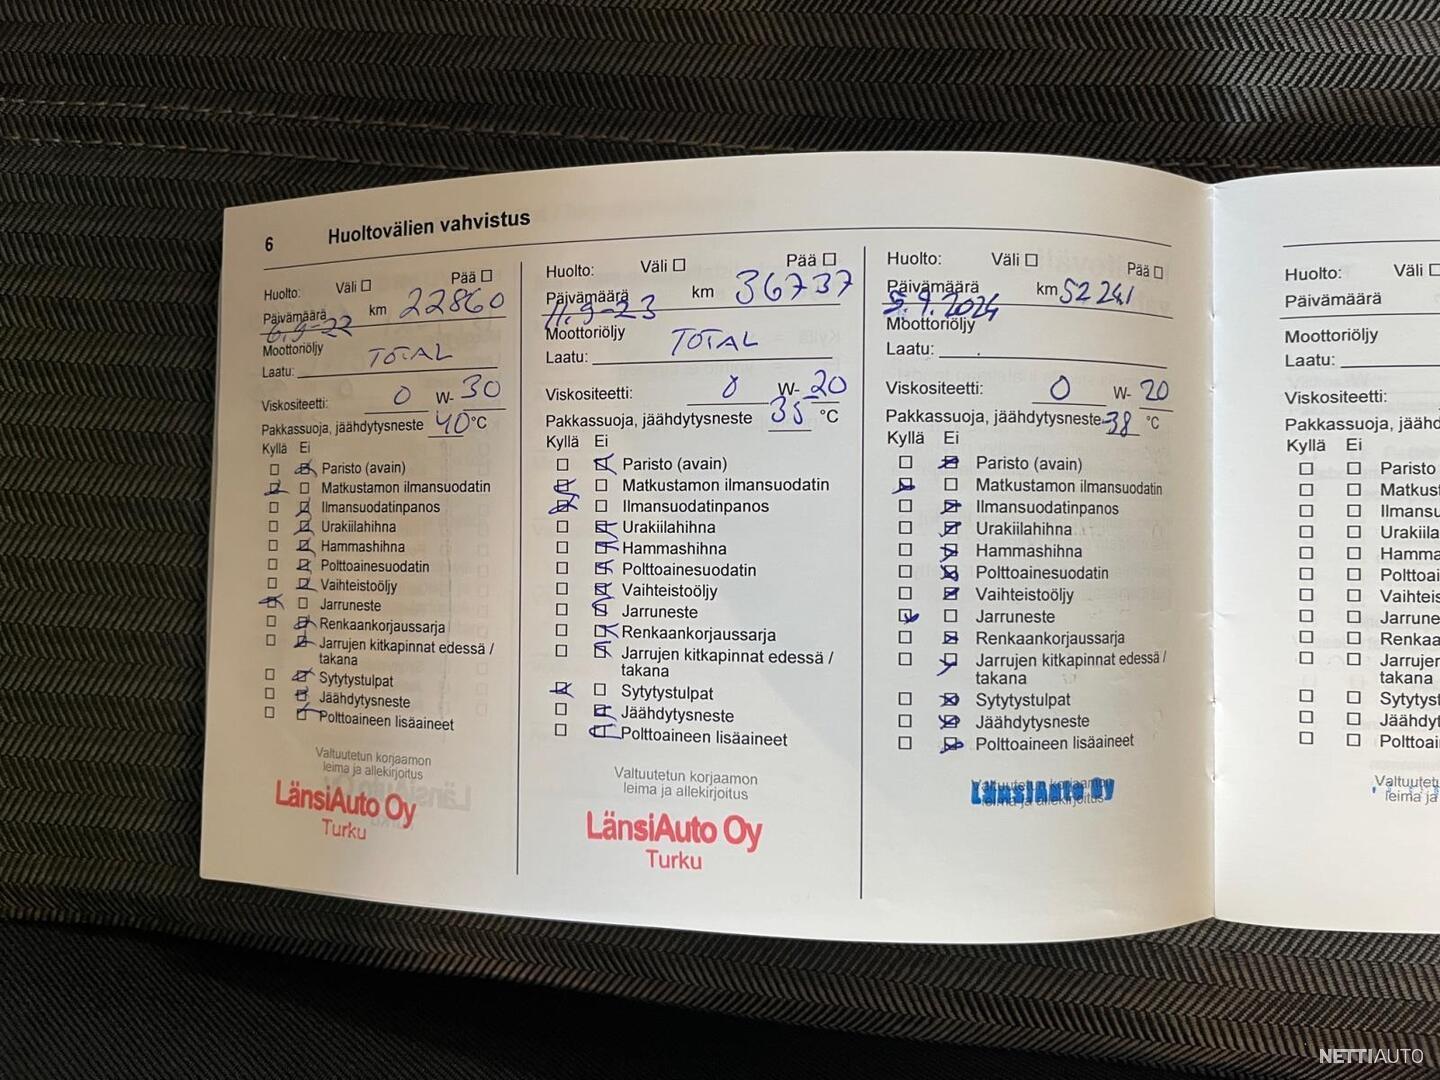 6 Huoltovälien vahvistus
Huolto: Väli Pää
Päivämäärä km 22860
6.9-22
Moottoriöljy
Laatu: TOTAL
Viskositeetti: 0 W- 30
Pakkassuoja, jäähdytysneste 40 °C
Kyllä Ei
Paristo (avain)
Matkustamon ilmansuodatin
Ilmansuodatinpanos
Urakiilahihna
Hammashihna
Polttoainesuodatin
Vaihteistoöljy
Jarruneste
Renkaankorjaussarja
Jarrujen kitkapinnat edessä /
takana
Sytytystulpat
Jäähdytysneste
Polttoaineen lisäaineet
Valtuutetun korjaamon
leima ja allekirjoitus
LänsiAuto Oy
Turku
Huolto: Väli Pää
Päivämäärä km 36737
11.9-23
Moottoriöljy
Laatu: TOTAL
Viskositeetti: 0 W- 20
Pakkassuoja, jäähdytysneste 35 °C
Kyllä Ei
Paristo (avain)
Matkustamon ilmansuodatin
Ilmansuodatinpanos
Urakiilahihna
Hammashihna
Polttoainesuodatin
Vaihteistoöljy
Jarruneste
Renkaankorjaussarja
Jarrujen kitkapinnat edessä /
takana
Sytytystulpat
Jäähdytysneste
Polttoaineen lisäaineet
Valtuutetun korjaamon
leima ja allekirjoitus
LänsiAuto Oy
Turku
Huolto: Väli Pää
Päivämäärä km 52241
5.9.2024
Moottoriöljy
Laatu:
Viskositeetti: 0 W- 20
Pakkassuoja, jäähdytysneste -38 °C
Kyllä Ei
Paristo (avain)
Matkustamon ilmansuodatin
Ilmansuodatinpanos
Urakiilahihna
Hammashihna
Polttoainesuodatin
Vaihteistoöljy
Jarruneste
Renkaankorjaussarja
Jarrujen kitkapinnat edessä /
takana
Sytytystulpat
Jäähdytysneste
Polttoaineen lisäaineet
Valtuutetun korjaamon
leima ja allekirjoitus
LänsiAuto Oy
Huolto: Väli
Päivämäärä
Moottoriöljy
Laatu:
Viskositeetti:
Pakkassuoja, jäähd
Kyllä Ei
Paristo
Matkus
Ilmansu
Urakiila
Hamma
Polttoai
Vaihteis
Jarrune
Renkaa
Jarrujer
takana
Sytytyst
Jäähdyt
Polttoai
Valtuutet
leima ja
NETTIAUTO